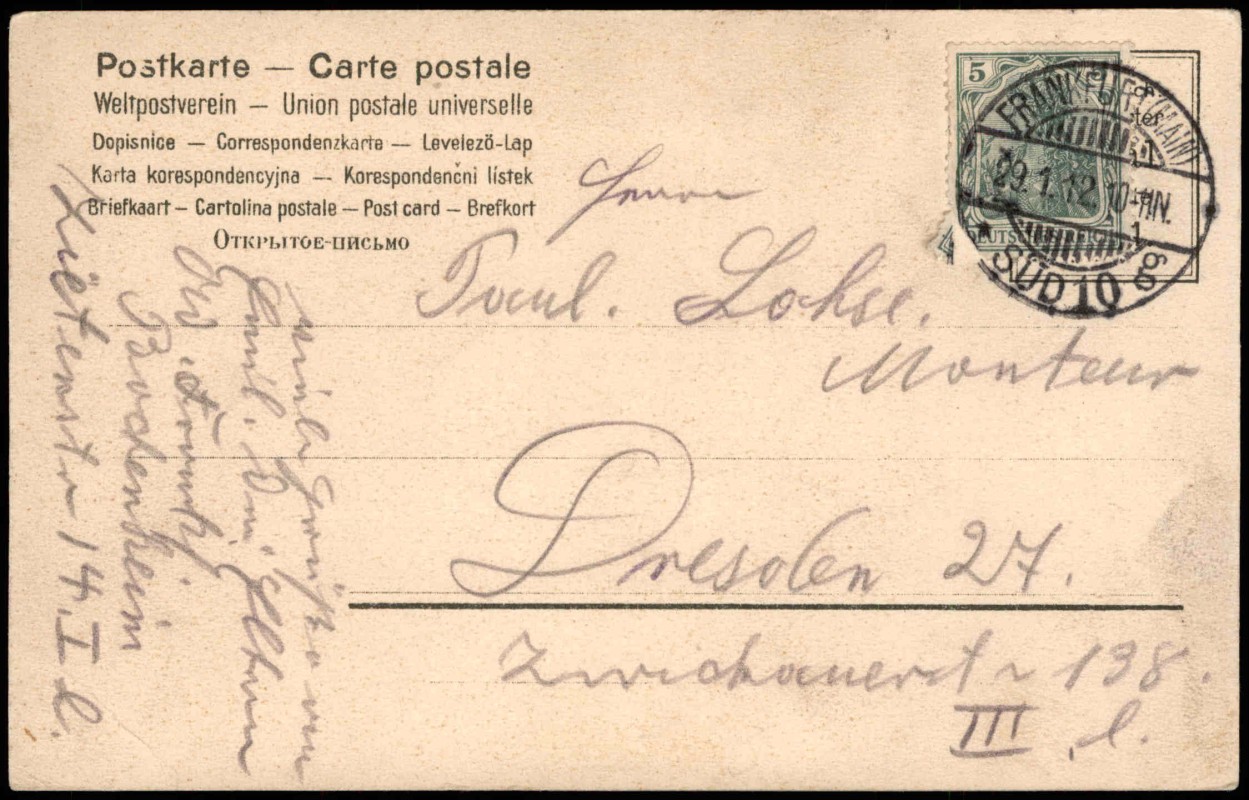 Postkarte — Carte postale
Weltpostverein — Union postale universelle
Dopisnice — Correspondenzkarte — Levelező-Lap
Karta korespondencyjna — Korespondenčni lístek
Briefkaart — Cartolina postale — Post card — Brefkort
Открытое-письмо
5
DEUTSCHES REICH
FRANKFURT (MAIN)
29.1.12. 10-11N.
SÜD 10 69
Herrn
Paul. Lohse.
Monteur
Dresden 27.
Zwickauerstr 138.
III l.
viele Grüße von
Bockenheim
14. I l.